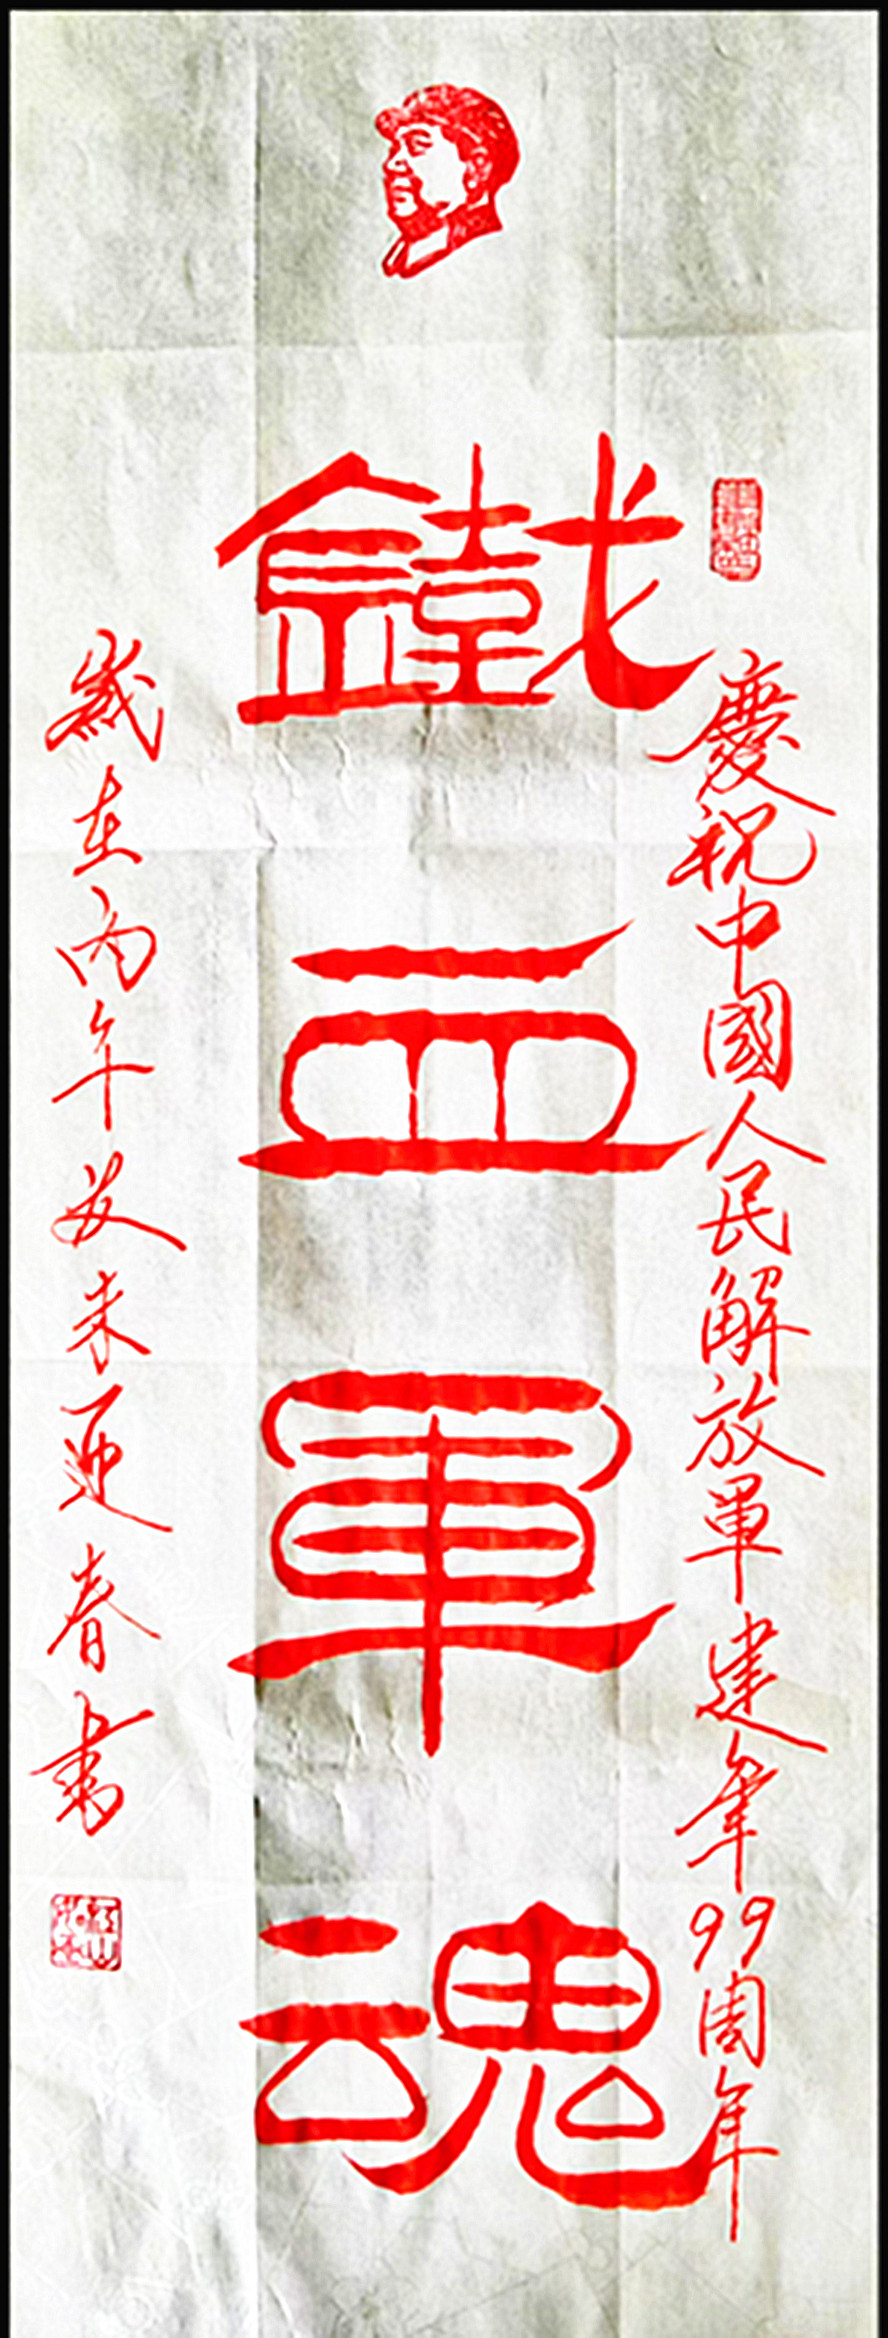 慶祝中國人民解放軍建軍99周年
鐵血軍魂
歲在丙午癸未迎春書